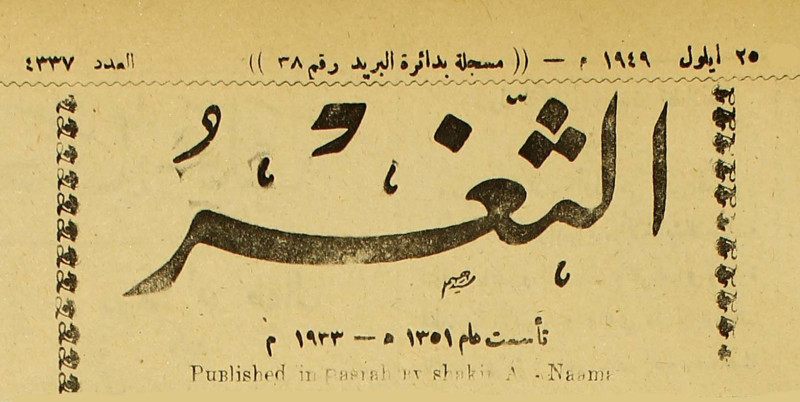 ٢٥ ايلول ١٩٤٩ م — (( مسجلة بدائرة البريد رقم ٣٨ )) العدد ٤٣٣٧
الثَّغْرُ
تأسست عام ١٣٥١ ه — ١٩٣٣ م
Published in Basrah by shakir A. -Naama